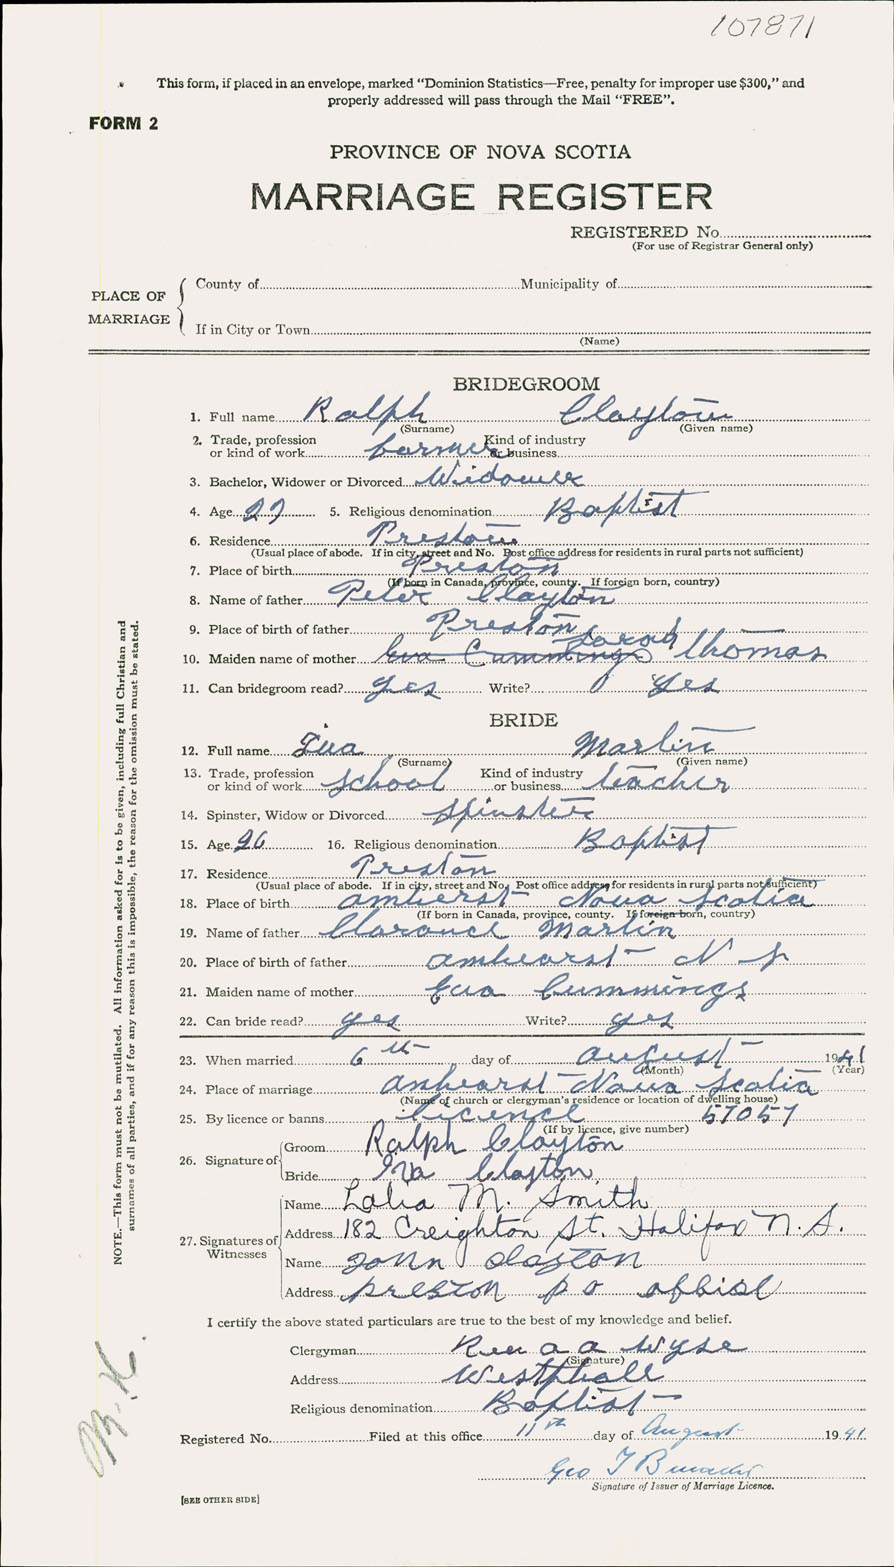 107871
This form, if placed in an envelope, marked "Dominion Statistics—Free, penalty for improper use $300," and
properly addressed will pass through the Mail "FREE".
FORM 2
PROVINCE OF NOVA SCOTIA
MARRIAGE REGISTER
REGISTERED No.
(For use of Registrar General only)
PLACE OF MARRIAGE
County of Municipality of
If in City or Town
(Name)
BRIDEGROOM
1. Full name Ralph Clayton
(Surname) (Given name)
2. Trade, profession or kind of work farmer Kind of industry or business
3. Bachelor, Widower or Divorced Widower
4. Age 27 5. Religious denomination Baptist
6. Residence Preston
(Usual place of abode. If in city, street and No. Post office address for residents in rural parts not sufficient)
7. Place of birth Preston
(If born in Canada, province, county. If foreign born, country)
8. Name of father Peter Clayton
9. Place of birth of father Preston
10. Maiden name of mother Eva Cummings Sarah Thomas
11. Can bridegroom read? yes Write? yes
BRIDE
12. Full name Iva Martin
(Surname) (Given name)
13. Trade, profession or kind of work school Kind of industry or business teacher
14. Spinster, Widow or Divorced spinster
15. Age 26 16. Religious denomination Baptist
17. Residence Preston
(Usual place of abode. If in city, street and No. Post office address for residents in rural parts not sufficient)
18. Place of birth amherst Nova Scotia
(If born in Canada, province, county. If foreign born, country)
19. Name of father Clarence Martin
20. Place of birth of father amhearst N S
21. Maiden name of mother Eva Cummings
22. Can bride read? yes Write? yes
23. When married 6th day of august 1941
(Month) (Year)
24. Place of marriage amhearst Nova Scotia
(Name of church or clergyman's residence or location of dwelling house)
25. By licence or banns licence 57057
(If by licence, give number)
26. Signature of Groom Ralph Clayton
Bride Iva Clayton
27. Signatures of Witnesses Name Lalia M. Smith
Address 182 Creighton St. Halifax N.S.
Name John Clayton
Address preston p o offise
I certify the above stated particulars are true to the best of my knowledge and belief.
Clergyman Rev a a Wyse
(Signature)
Address Westphall
Religious denomination Baptist
Registered No. Filed at this office 11th day of August 1941
Geo T
Signature of Issuer of Marriage Licence.
[SEE OTHER SIDE]
NOTE.—This form must not be mutilated. All information asked for is to be given, including full Christian and
surnames of all parties, and if for any reason this is impossible, the reason for the omission must be stated.